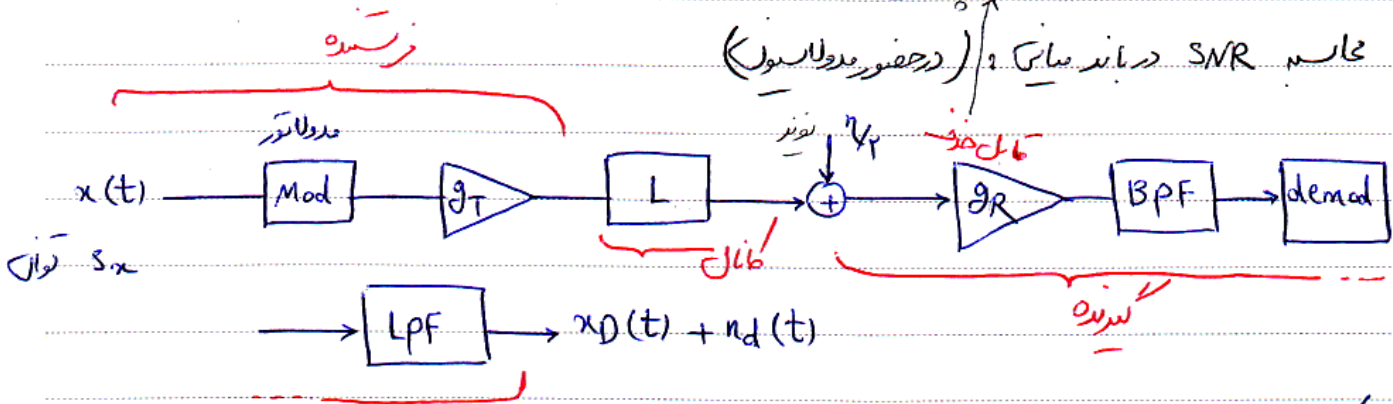 محاسبه SNR در باند میانی : (در حضور مدولاسیون)
فرستنده
مدولاتور
نویز η/۲ قابل حذف
x(t) Mod gT L + gR BPF demod
توان Sx
کانال
گیرنده
LPF xD(t) + nd(t)